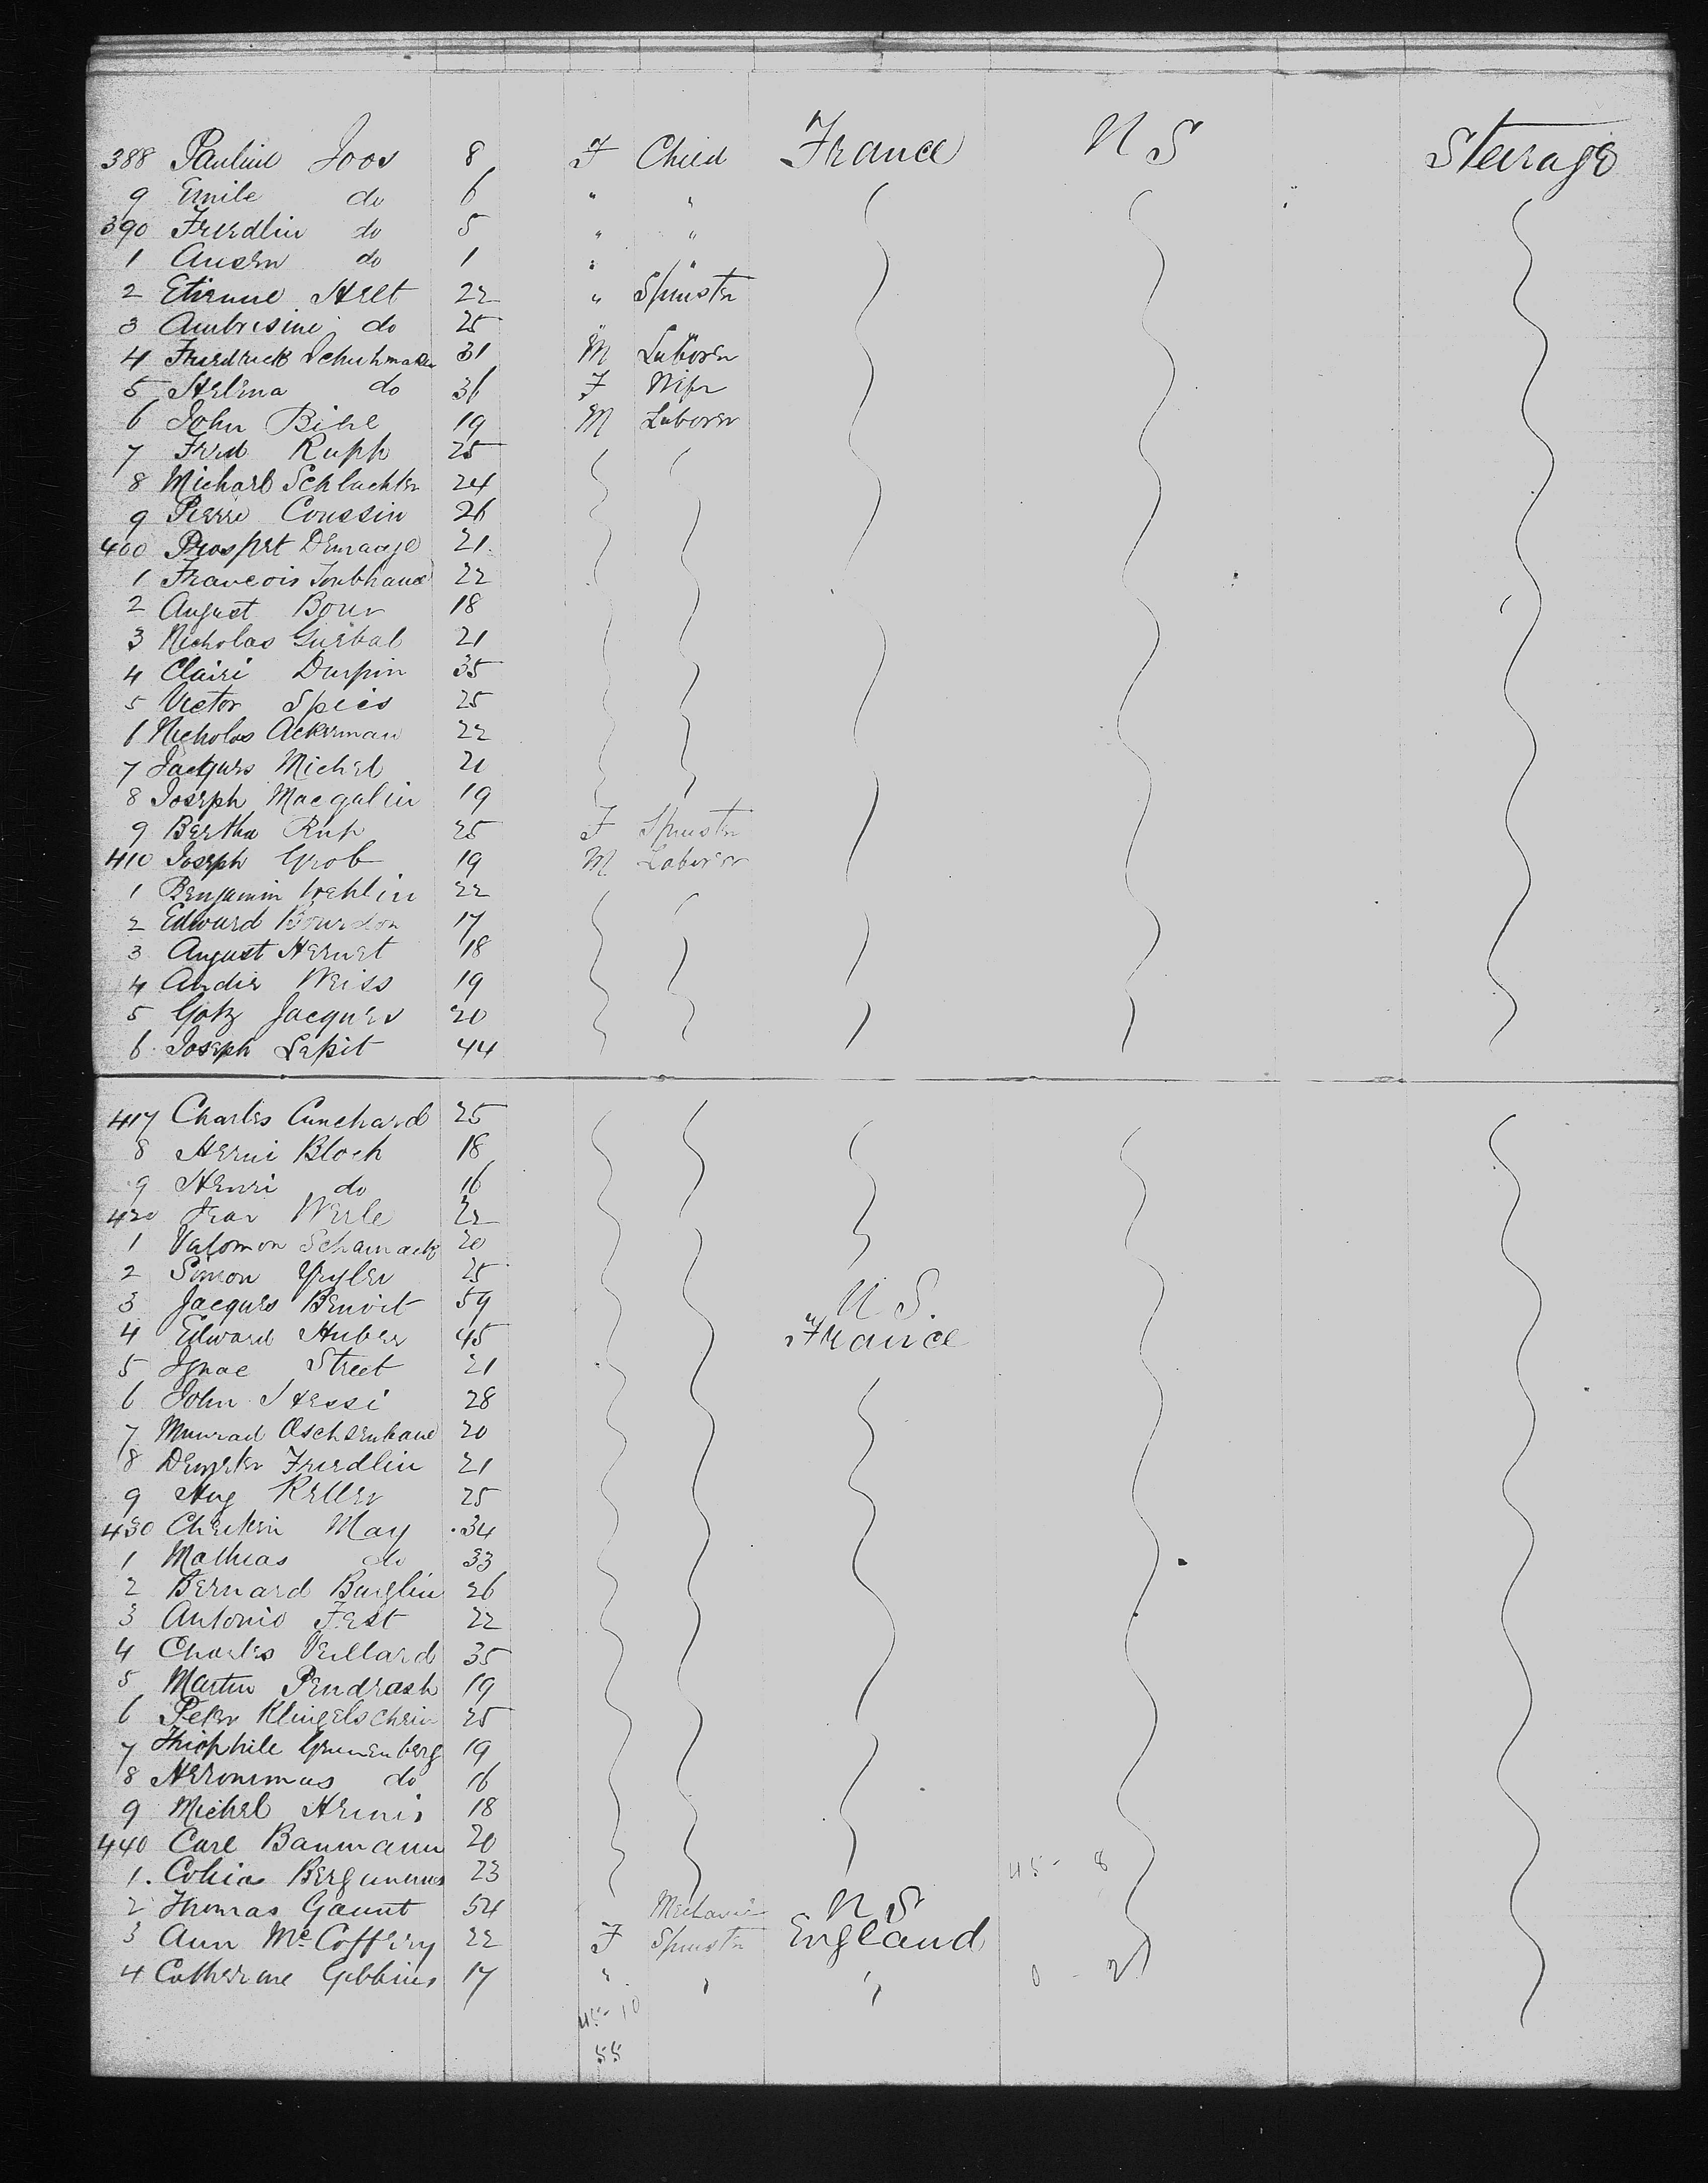 388 Pauline Joos 8 F Child France U S Steerage
9 Emile do 6 " "
390 Friedlin do 5 " "
1 do 1 " "
2 Etienne Helt 22 " Spinster
3 Ambrosine do 25 " "
4 Friedrick Schuhmaker 31 M Laborer
5 Helena do 36 F Wife
6 John Bihl 19 M Laborer
7 Fred Ruph 25
8 Michael Schlachter 24
9 Pierre Coussin 26
400 Prospert Demange 21
1 Francois 22
2 August Bour 18
3 Nicholas 21
4 Claire Durpin 35
5 Victor Speis 25
6 Nicholas Ackerman 22
7 Jacques Michel 21
8 Joseph Macgalin 19
9 Bertha Ruh 25 F Spinster
410 Joseph Grob 19 M Laborer
1 Benjamin 22
2 Edward Bourdon 17
3 August Hernet 18
4 Andre Weiss 19
5 Gotz Jacques 20
6 Joseph Lepit 44
417 Charles Cunchard 25
8 Henri Bloch 18
9 Henri do 16
420 Jean Werle 22
1 Salomon 20
2 Simon 25
3 Jacques Benoit 59 U S.
4 Edward Huber 45 France
5 Ignac Street 21
6 John Hessi 28
7 20
8 Friedlin 21
9 Aug Keller 25
430 May 34
1 Mathias do 33
2 Bernard Burglin 26
3 Antonio Fest 22
4 Charles Veillard 35
5 Martin Pendrash 19
6 Peter 25
7 Theophile Grunenberg 19
8 Heronimus do 16
9 Michel 18
440 Carl Baumann 20
1. 23 45 - 8
2 Thomas Gaunt 54 Mechanic U S
3 Ann McCoffery 22 F Spinster England
4 Catherine Gibbins 17 " " " 0 - 2
45 - 10
55